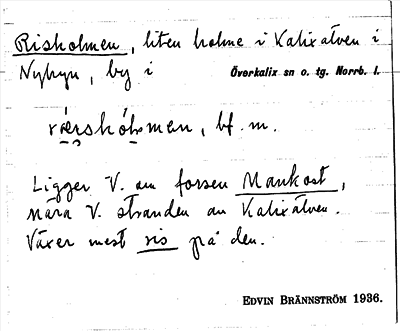 Risholmen, liten holme i Kalixälven i
Nybyn, by i Överkalix sn o. tg. Norrb. l.
bf. m.
Ligger V. om forsen Mankost,
nära V. stranden av Kalixälven.
Växer mest ris på den.
EDVIN BRÄNNSTRÖM 1936.